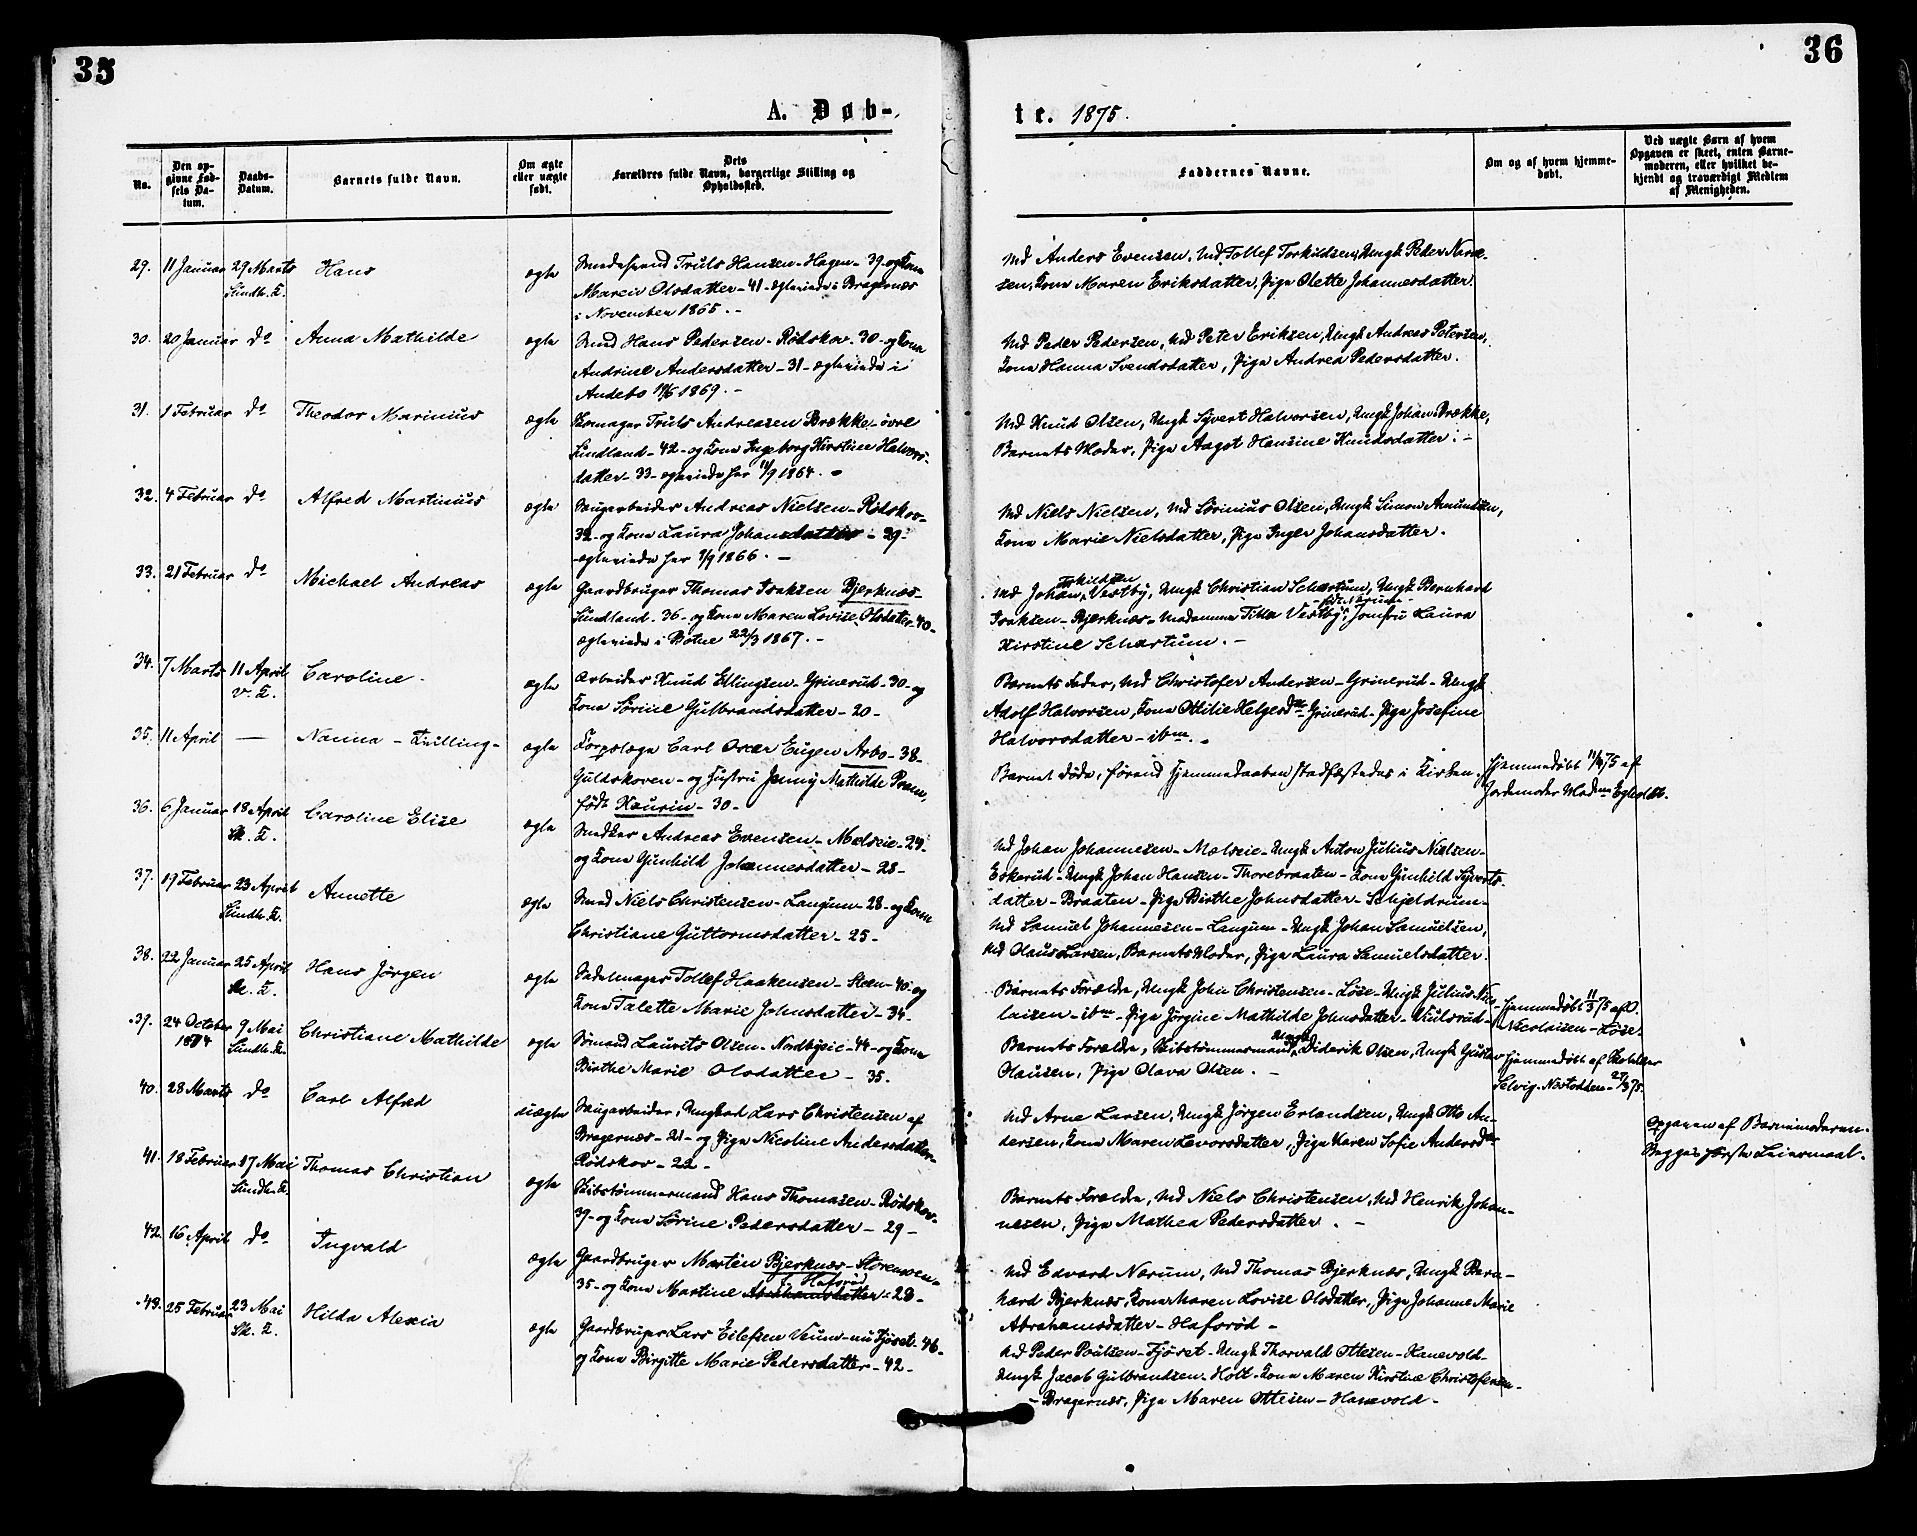 35
36
A. Døb-
te. 1875.
No.
Den op-
givne Fød-
sels Da-
tum.
Daabs-
Datum.
Barnets fulde Navn.
Om ægte
eller uægte
født.
Dets
Forældres fulde Navn, borgerlige Stilling og
Opholdssted.
Faddernes Navne.
Om og af hvem hjemme-
døbt.
Ved uægte Barn af hvem
Opgaven er skeet, enten Barne-
moderen, eller hvilket be-
kjendt og troværdigt Medlem
af Menigheden.
29. 11 Januar 29 Marts Hans ægte Truls Hansen - Hagen - 39 - og Kone
Sundh. K. Maren Olsdatter - 41 - ægteviede i Bragernæs
i November 1865. -
Md Anders Evensen, Md. Tollef Torkildsen, Ungk Peder
Kone Maren Eriksdatter, Pige Olette Johannesdatter.
30. 20 Januar do Anna Mathilde ægte Smed Hans Pedersen - Rødskov - 30 - og Kone
Andrine Andersdatter - 31 - ægteviede i
Andebo 1869. -
Md Peder Pedersen, Md Peter Eriksen, Ungk Andreas Petersen,
Kone Hanna Svendsdatter, Pige Andrea Pedersdatter.
31. 1 Februar do Theodor Marinius ægte Truls Andreasen Brække - øvre
Sundland - 42 - og Kone Ingeborg Kirstine Halvors-
datter - 33 - ægteviede her 11/9 1864. -
Md Knud Olsen, Ungk Syvert Halvorsen, Ungk Johan Brække,
Barnets Moder, Pige Aagot Hansine Knudsdatter. -
32. 4 Februar do Alfred Martinius ægte Saugarbeider Andreas Nielsen - Rødskov -
32 - og Kone Laura Johansdatter - 29 -
ægteviede her 1/9 1866. -
Md Niels Nielsen, Md Sørinius Olsen, Ungk Simon Amundsen,
Kone Marie Nielsdatter, Pige Inger Johansdatter.
33. 21 Februar do Michael Andreas ægte Gaardbruger Thomas Isaksen Bjerknæs -
Sundland - 36 - og Kone Maren Lovise Olsdatter - 40 -
ægteviede i Botne 22/3 1867. -
Md Johan Vestby, Ungk Christian Schartum, Ungk Bernhard
Isaksen - Bjerknæs - Madamme Vestby, Jomfru Laura
Kirstine Schartum. -
34. 7 Marts 11 April Caroline - ægte Arbeider Knud Ellingsen - Grinerud - 30 - og
V. K. Kone Sørine Gulbrandsdatter - 20 -
Barnets Fader, Md Christofer Andersen - Grinerud - Ungk
Adolf Halvorsen, Kone Ottilie Helgesdtr - Grinerud - Pige Josefine
Halvorsdatter - ibm. -
35. 11 April — Nanna - Tvilling - ægte Korpslæge Carl Oscar Eugen Arbo - 38 -
Guldskoven - og Hustru Jenny Mathilde
født Kaurin - 30 -
Barnet døde, førend Hjemmedaaben stadfæstedes i Kirken.
Hjemmedøbt 11/4 75 af
Jordemoder
36. 6 Januar 18 April Caroline Elise ægte Snedker Andreas Evensen - Mælseie - 29 -
Sk. K. og Kone Gunhild Johannesdatter - 28 -
Md Johan Johannesen - Mælseie - Ungk Anton Julius Nielsen -
Eskerud - Ungk Johan Hansen - Thorebraaten - Kone Gunhild Syverts-
datter - Braaten - Pige Birthe Johnsdatter - Schjeldrum -
37. 19 Februar 23 April Annette ægte Smed Niels Christensen - Langum - 28 - og Kone
Sundh. K. Christiane Guttormsdatter - 25 -
Md Samuel Johannesen - Langum - Ungk Johan Samuelsen,
Md Olaus Larsen, Barnets Moder, Pige Laura Samuelsdatter.
38. 22 Januar 25 April Hans Jørgen ægte Sadelmager Tollef Haakensen - Steen - 40 - og
Sk. K. Kone Talette Marie Johnsdatter - 34 -
Barnets Forældre, Ungk John Christensen - Løse - Ungk Julius Nico-
laisen - ibm - Pige Jørgine Mathilde Johnsdatter -
Hjemmedøbt 11/3 75 af O.
Nicolaisen - Løse.
39. 24 October 9 Mai Christiane Mathilde ægte Sømand Laurits Olsen - Nordbyeie - 44 - og Kone
1874 Sundh. K. Birthe Marie Olsdatter - 35.
Barnets Forældre, Skibstømmermand Diderik Olsen, Ungk Gustav
Olausen, Pige Olava Olsen. -
Hjemmedøbt af
Selvig - Næstodden - 75.
40. 28 Marts do Carl Alfred uægte Saugarbeider, Ungkarl Lars Christensen af
Bragernæs - 21 - og Pige Nicoline Andersdatter -
Rødskov - 22 -
Md Arne Larsen, Ungk Jørgen Erlandsen, Ungk Otto An-
dersen, Kone Maren Levorsdatter, Pige Karen Sofie Andersdtr
Opgaven af Barnemoderen.
Begges første Leiermaal.
41. 18 Februar 17 Mai Thomas Christian ægte Skibstømmermand Hans Thomasen - Rødskov -
Sundh. K. 39 - og Kone Sørine Pedersdatter - 29 -
Barnets Forældre, Md Niels Christensen, Md Henrik Johan-
nesen, Pige Mathea Pedersdatter. -
42. 16 April do Ingvald ægte Gaardbruger Morten Bjerknæs -
35 - og Kone Martine Abrahamsdatter - 28 -
f. Haforød
Md Edvard Nærum, Md Thomas Bjerknæs, Ungk Bern-
hard Bjerknæs, Kone Maren Lovise Olsdatter, Pige Johanne Marie
Abrahamsdatter - Haforød -
43. 25 Februar 23 Mai Hilda Alexia ægte Gaardbruger Lars Eilefsen - nu Fjøset - 46 -
Sk. K. og Kone Birgitte Marie Pedersdatter - 42 -
Md Peder Poulsen - Fjøset - Ungk Thorvald Ottesen - Hanevold -
Ungk Jacob Gulbrandsen - Holt - Kone Maren Kirstine Christofersen -
- Bragernæs, Pige Maren Ottesen - Hanevold -